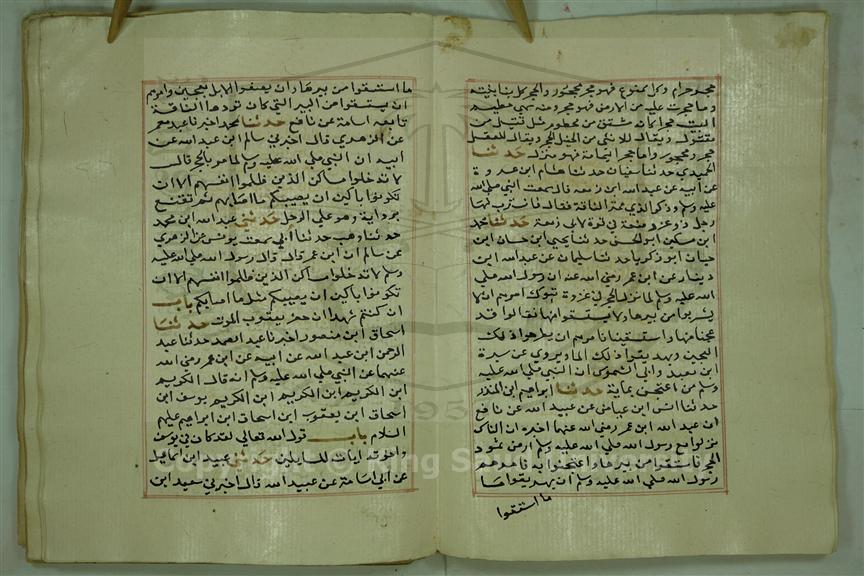 حجر وحرام وكل ممنوع فهو حجر محجور والحجر كل بناء بنيته
وما حجرت عليه من الارض فهو حجر ومنه سمي حطيم
البيت حجرا كانه مشتق من محطوم مثل قتيل من
مقتول ويقال للانثي من الخيل الحجر ويقال للعقل
حجر وحجي واما حجر اليمامة فهو منزل حدثنا
الحميدي حدثنا سفيان حدثنا هشام ابن عروة
عن ابيه عن عبد الله ابن زمعة قال سمعت النبي صلي الله
عليه وسلم وذكر الذي عقر الناقة فقال فانتدب لها
رجل ذو عز ومنعة في قوة كابي زمعة حدثنا محمد
ابن مسكين ابو الحسن حدثنا يحيي ابن حسان ابن
حيان ابو زكريا حدثنا سليمان عن عبد الله ابن
دينار عن ابن عمر رضي الله عنه ان رسول الله صلي
الله عليه وسلم لما نزل الحجر في غزوة تبوك امرهم ان لا
يشربوا من بيرها ولا يستقوا منها فقالوا قد
عجنا منها واستقينا فامرهم ان يطرحوا ذلك
العجين ويهريقوا ذلك الما ويروي عن سبرة
ابن معبد وابي الشموس ان النبي صلي الله عليه
وسلم من اعتجن بمايه حدثنا ابراهيم ابن المنذر
حدثنا انس ابن عياض عن عبيد الله عن نافع
ان عبد الله ابن عمر رضي الله عنهما اخبره ان الناس
نزلوا مع رسول الله صلي الله عليه وسلم ارض ثمود
الحجر فاستقوا من بيرها واعتجنوا به فامرهم
رسول الله صلي الله عليه وسلم ان يهريقوا ما
ما استقوا
ما استقوا من بيرها وان يعلفوا الابل العجين وامرهم
ان يستقوا من البير التي كان تردها الناقة
تابعه اسامة عن نافع حدثنا محمد اخبرنا عبد معمر
عن الزهري قال اخبرني سالم ابن عبد الله عن
ابيه ان النبي صلي الله عليه وسلم لما مر بالحجر قال
لا تدخلوا مساكن الذين ظلموا انفسهم الا ان
تكونوا باكين ان يصيبكم ما اصابهم ثم تقنع
بردايه وهو علي الرحل حدثني عبد الله ابن محمد
حدثنا وهب حدثنا ابي سمعت يونس عن الزهري
عن سالم ان ابن عمر قال قال رسول الله صلي الله عليه
وسلم لا تدخلوا مساكن الذين ظلموا انفسهم الا ان
تكونوا باكين ان يصيبكم مثل ما اصابكم باب
ان كنتم شهدا اذ حضر يعقوب الموت حدثنا
اسحاق ابن منصور اخبرنا عبد الصمد حدثنا عبد
الرحمن ابن عبد الله عن ابيه عن ابن عمر رضي الله
عنهما عن النبي صلي الله عليه وسلم انه قال الكريم
ابن الكريم ابن الكريم ابن الكريم يوسف ابن
اسحاق ابن يعقوب ابن اسحاق ابن ابراهيم عليهم
السلام باب قول الله تعالي لقد كان في يوسف
واخوته ايات للسايلين حدثني عبيد ابن اسماعيل
عن ابي اسامة عن عبيد الله قال اخبرني سعيد ابن
Copyright © King S